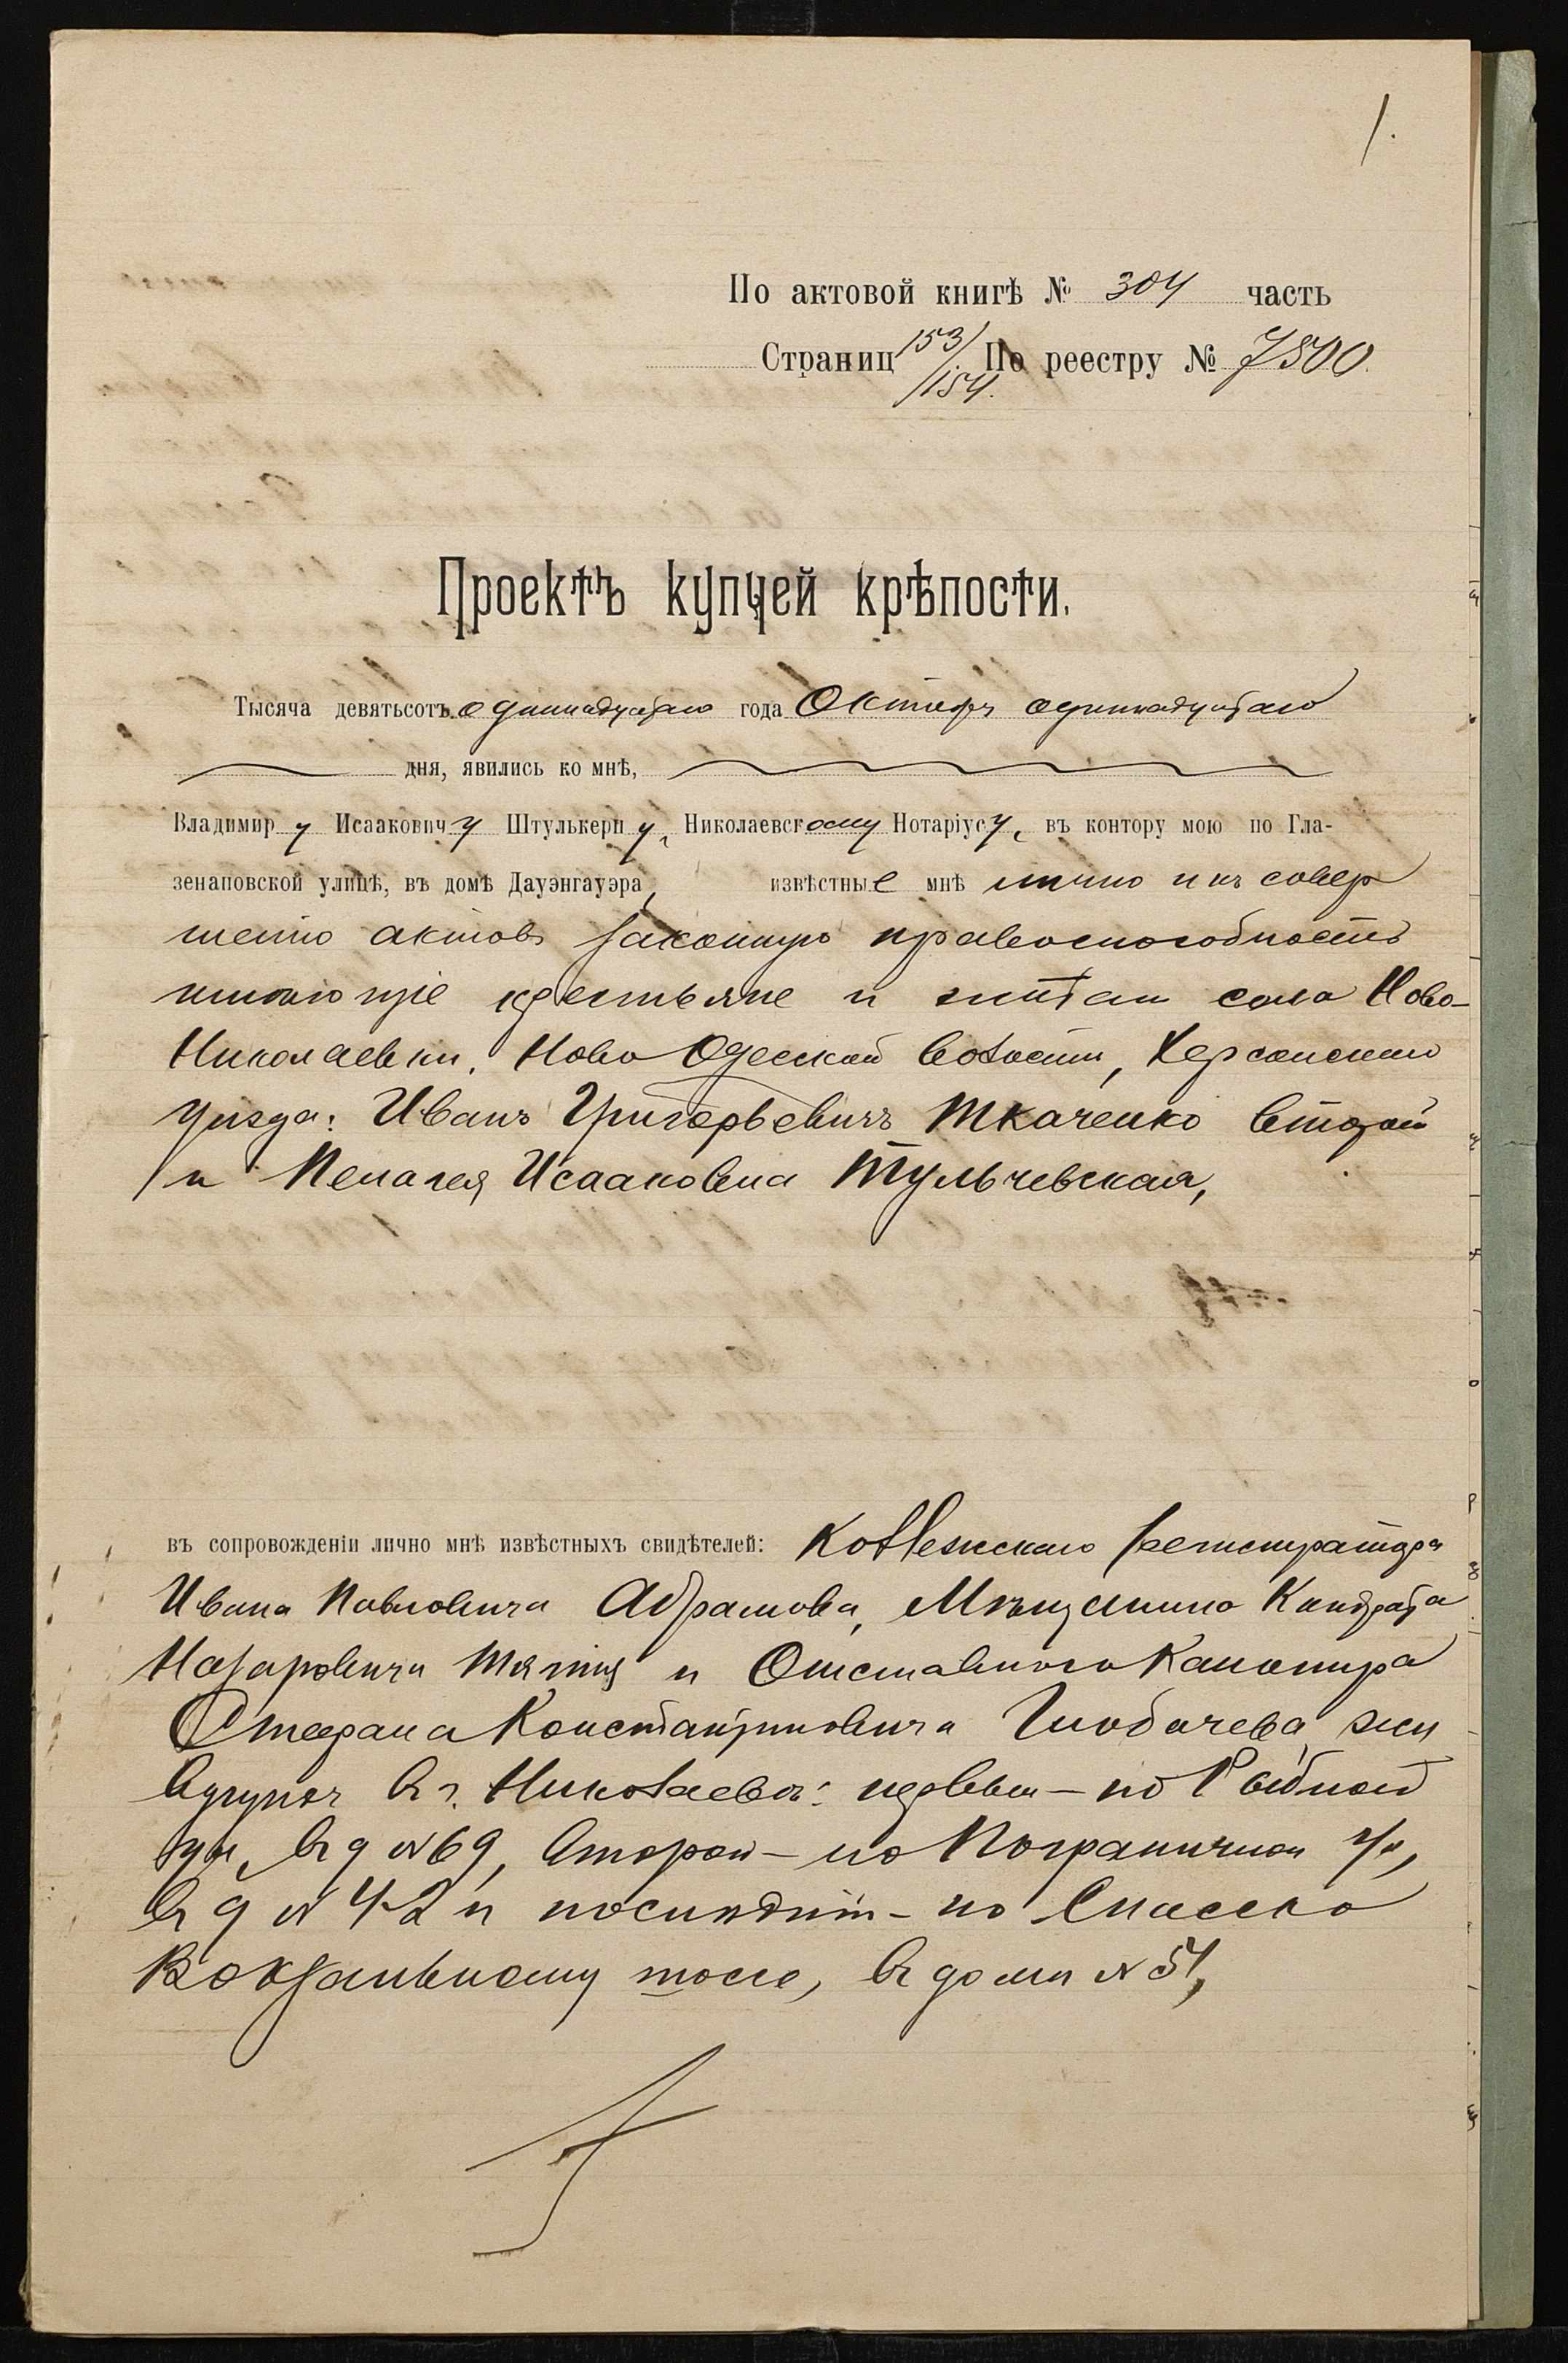 1.
По актовой книгѣ № 304 часть
Страниц 153/154. По реестру № 7500.
Проектъ купчей крѣпости.
Тысяча девятьсотъ одиннадцатаго года Октября одиннадцатаго
дня, явились ко мнѣ,
Владимиру Исааковичу Штулькерну, Николаевскому Нотаріусу, въ контору мою по Гла-
зенаповской улицѣ, въ домѣ Дауэнгауэра, извѣстные мнѣ лично и къ совер
шенію актовъ законную правоспособность
имѣющіе крестьяне и жители села Ново-
Николаевки, Ново Одесской волости, Херсонскаго
уѣзда: Иванъ Григорьевичъ Ткаченко второй
и Пелагея Исааковна Тульчевская,
въ сопровожденіи лично мнѣ извѣстныхъ свидѣтелей: Коллежскаго регистратора
Ивана Павловича Абрамова, Мѣщанина Кондрата
Назаровича и Отставного Канонира
Стефана Константиновича Глобачева, жи
вущихъ в г. Николаевѣ: первый – по Рыбной
ул, в д № 69, второй – по Пограничной ул,
в д № 42 и послѣдній – по Спасско
Вокзальному шоссе, в домѣ №